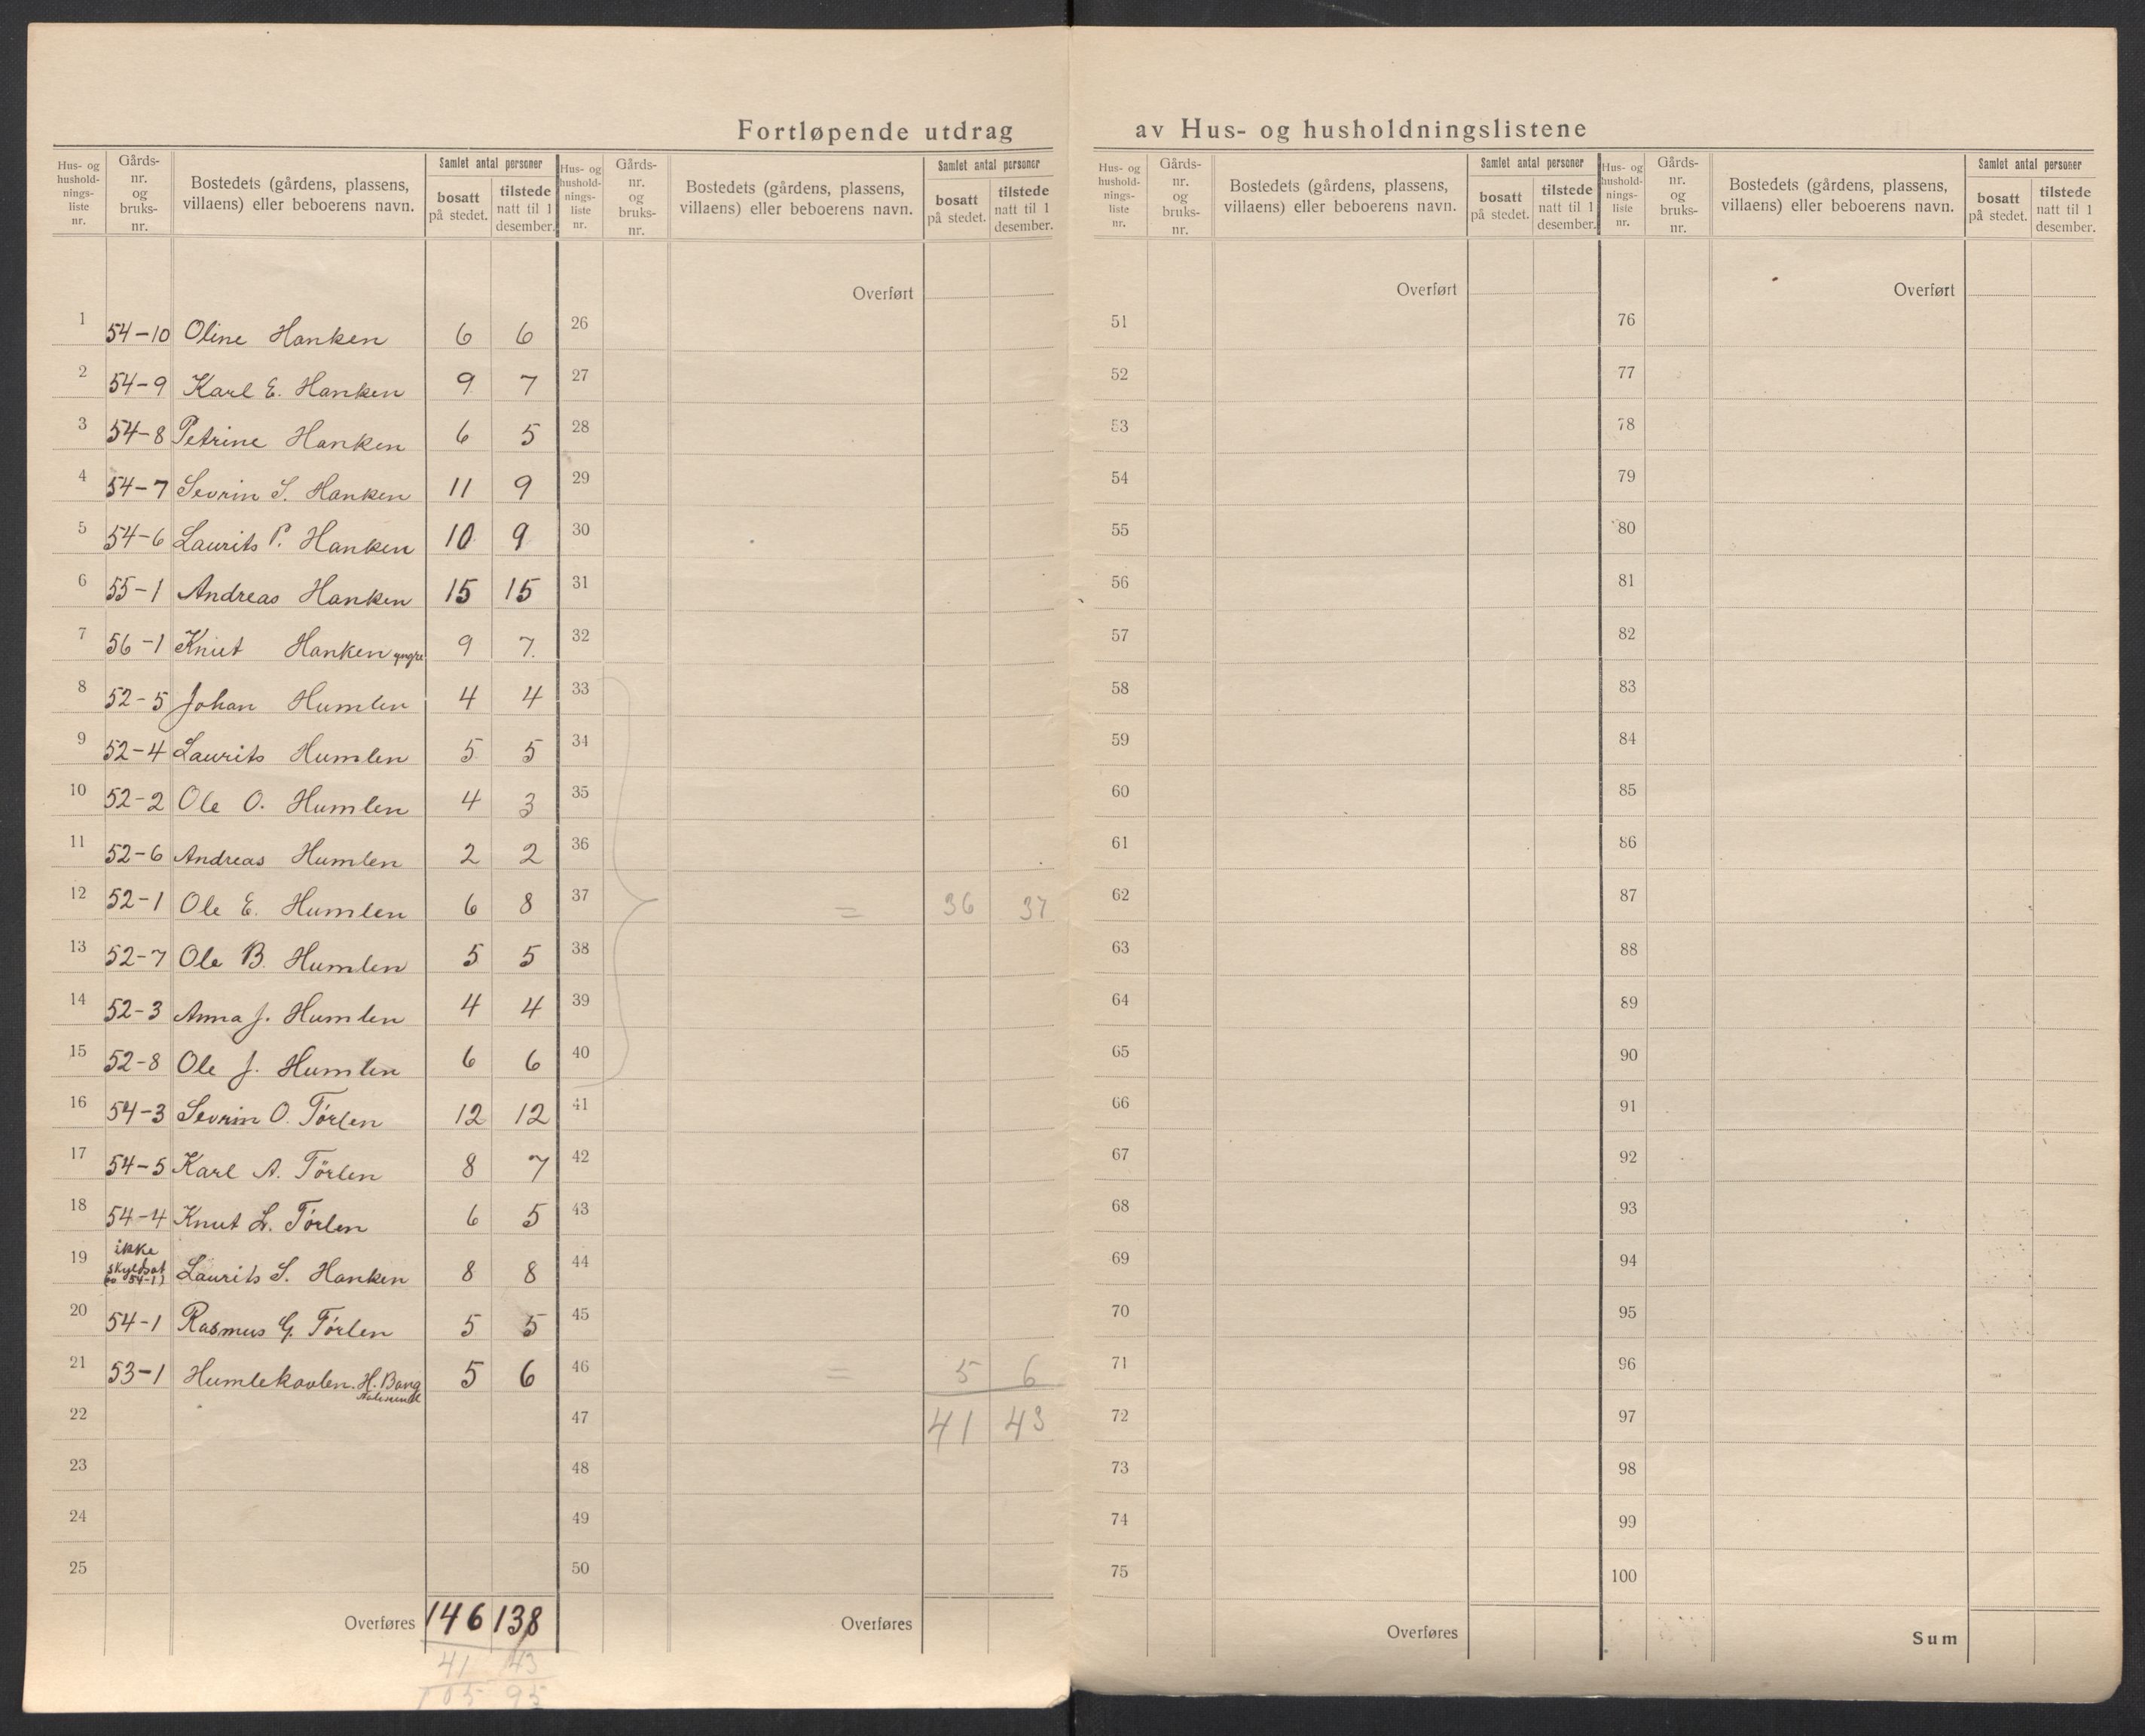 Fortløpende utdrag av Hus- og husholdningslistene
Hus- og hushold-nings-liste nr. | Gårds-nr. og bruks-nr. | Bostedets (gårdens, plassens, villaens) eller beboerens navn. | Samlet antal personer | bosatt på stedet. | tilstede natt til 1 desember.
1 54-10 Oline Hanken 6 6
2 54-9 Karl E. Hanken 9 7
3 54-8 Petrine Hanken 6 5
4 54-7 Sevrin S. Hanken 11 9
5 54-6 Laurits P. Hanken 10 9
6 55-1 Andreas Hanken 15 15
7 56-1 Knut Hanken yngre 9 7.
8 52-5 Johan Humlen 4 4
9 52-4 Laurits Humlen 5 5
10 52-2 Ole O. Humlen 4 3
11 52-6 Andreas Humlen 2 2
12 52-1 Ole E. Humlen 6 8
13 52-7 Ole B. Humlen 5 5
14 52-3 Anna J. Humlen 4 4
15 52-8 Ole J. Humlen 6 6
16 54-3 Sevrin O. Tørlen 12 12
17 54-5 Karl A. Tørlen 8 7
18 54-4 Knut L. Tørlen 6 5
19 ikke skyldsat 54-1) Laurits S. Hanken 8 8
20 54-1 Rasmus G. Tørlen 5 5
21 53-1 Humlekovlen. H. Bang Aalesund 5 6
22
23
24
25
Overføres 146 138
41 43
105 95
Hus- og hushold-nings-liste nr. | Gårds-nr. og bruks-nr. | Bostedets (gårdens, plassens, villaens) eller beboerens navn. | Samlet antal personer | bosatt på stedet. | tilstede natt til 1 desember.
Overført
26
27
28
29
30
31
32
33
34
35
36
37 = 36 37
38
39
40
41
42
43
44
45
46 = 5 6
47 41 43
48
49
50
Overføres
Hus- og hushold-nings-liste nr. | Gårds-nr. og bruks-nr. | Bostedets (gårdens, plassens, villaens) eller beboerens navn. | Samlet antal personer | bosatt på stedet. | tilstede natt til 1 desember.
Overført
51
52
53
54
55
56
57
58
59
60
61
62
63
64
65
66
67
68
69
70
71
72
73
74
75
Overføres
Hus- og hushold-nings-liste nr. | Gårds-nr. og bruks-nr. | Bostedets (gårdens, plassens, villaens) eller beboerens navn. | Samlet antal personer | bosatt på stedet. | tilstede natt til 1 desember.
Overført
76
77
78
79
80
81
82
83
84
85
86
87
88
89
90
91
92
93
94
95
96
97
98
99
100
Sum